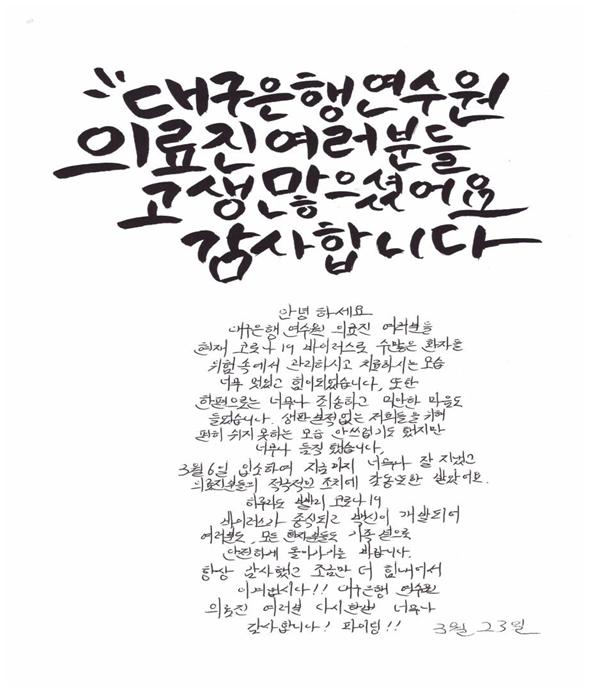 대구은행연수원
의료진여러분들
고생많으셨어요
감사합니다
안녕하세요
대구은행 연수원 의료진 여러분들
현재 코로나19 바이러스로 수많은 환자를
위험속에서 관리하시고 치료하시는 모습
너무 멋있고 힘이되었습니다, 또한
한편으로는 너무나 죄송하고 미안한 마음도
들었습니다. 생판 본적없는 저희들을 위해
편히 쉬지 못하는 모습 안쓰럽기도 했지만
너무나 듬직 했습니다,
3월6일 입소하여 지금까지 너무나 잘 지냈고
의료진분들의 적극적인 조치에 감동또한 받았어요.
하루라도 빨리 코로나19
바이러스가 종식되고 백신이 개발되어
여러분도, 모든 환자분들도 가족 곁으로
안전하게 돌아가기를 바랍니다.
항상 감사했고 조금만 더 힘내어서
이겨냅시다!! 대구은행 연수원
의료진 여러분 다시한번 너무나
감사합니다! 파이팅!! 3월 23일